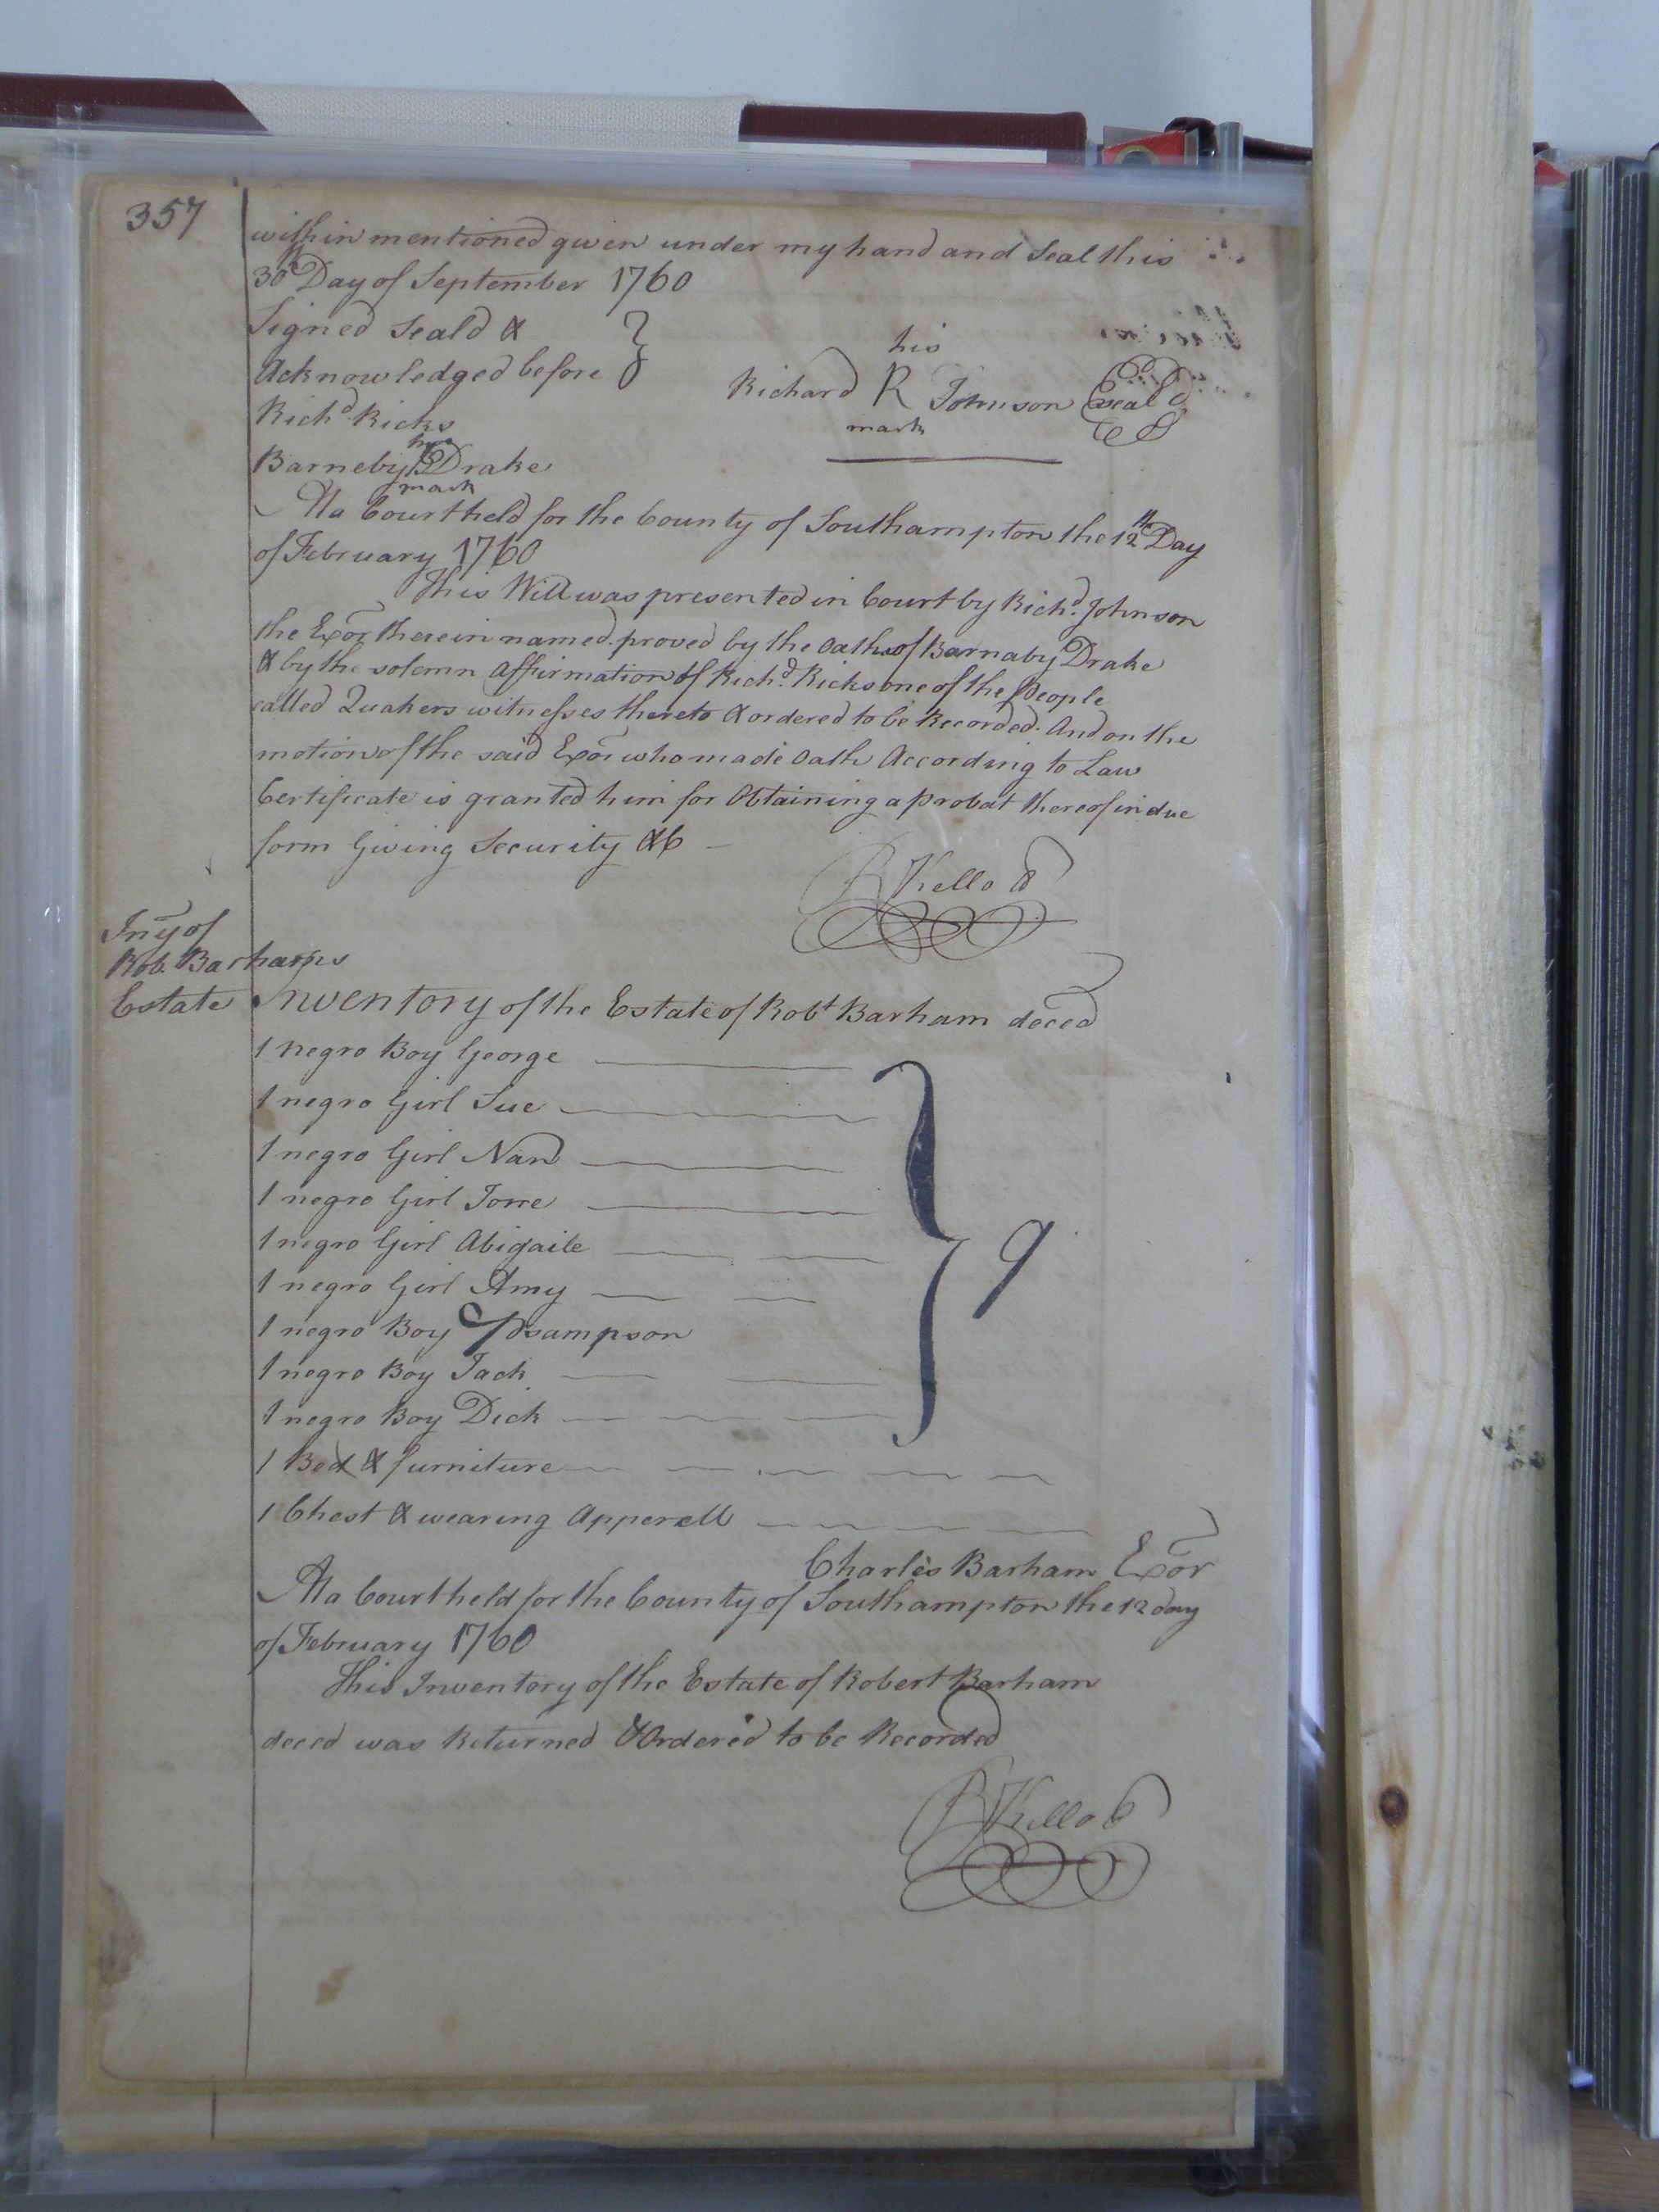 357
within mentioned given under my hand and Seal this
30th Day of September 1760
Signed Seald &
Acknowledged before
his
Richard R Johnson Seal
mark
Richd Ricks
his
Barneby B Drake
mark
At a Court held for the County of Southampton the 12th Day
of February 1760
This Will was presented in Court by Richd. Johnson
the Exor therein named proved by the Oath of Barnaby Drake
& by the solemn Affirmation of Richd. Ricks one of the People
called Quakers witnesses thereto & ordered to be Recorded. And on the
motion of the said Exor who made Oath According to Law
Certificate is granted him for Obtaining a probat thereof in due
form Giving Security &C
R Kello C
Invy of
Rob. Barhams
Estate
Inventory of the Estate of Robt Barham deced
1 negro Boy George
1 negro Girl Sue
1 negro Girl Nan
1 negro Girl
1 negro Girl Abigaile
1 negro Girl Amy
1 negro Boy Sampson
1 negro Boy Jack
1 negro Boy Dick
9
1 Bed & furniture
1 Chest & wearing Apperell
Charles Barham Exor
At a Court held for the County of Southampton the 12 day
of February 1760
This Inventory of the Estate of Robert Barham
deced was Returned & Ordered to be Recorded
R Kello C